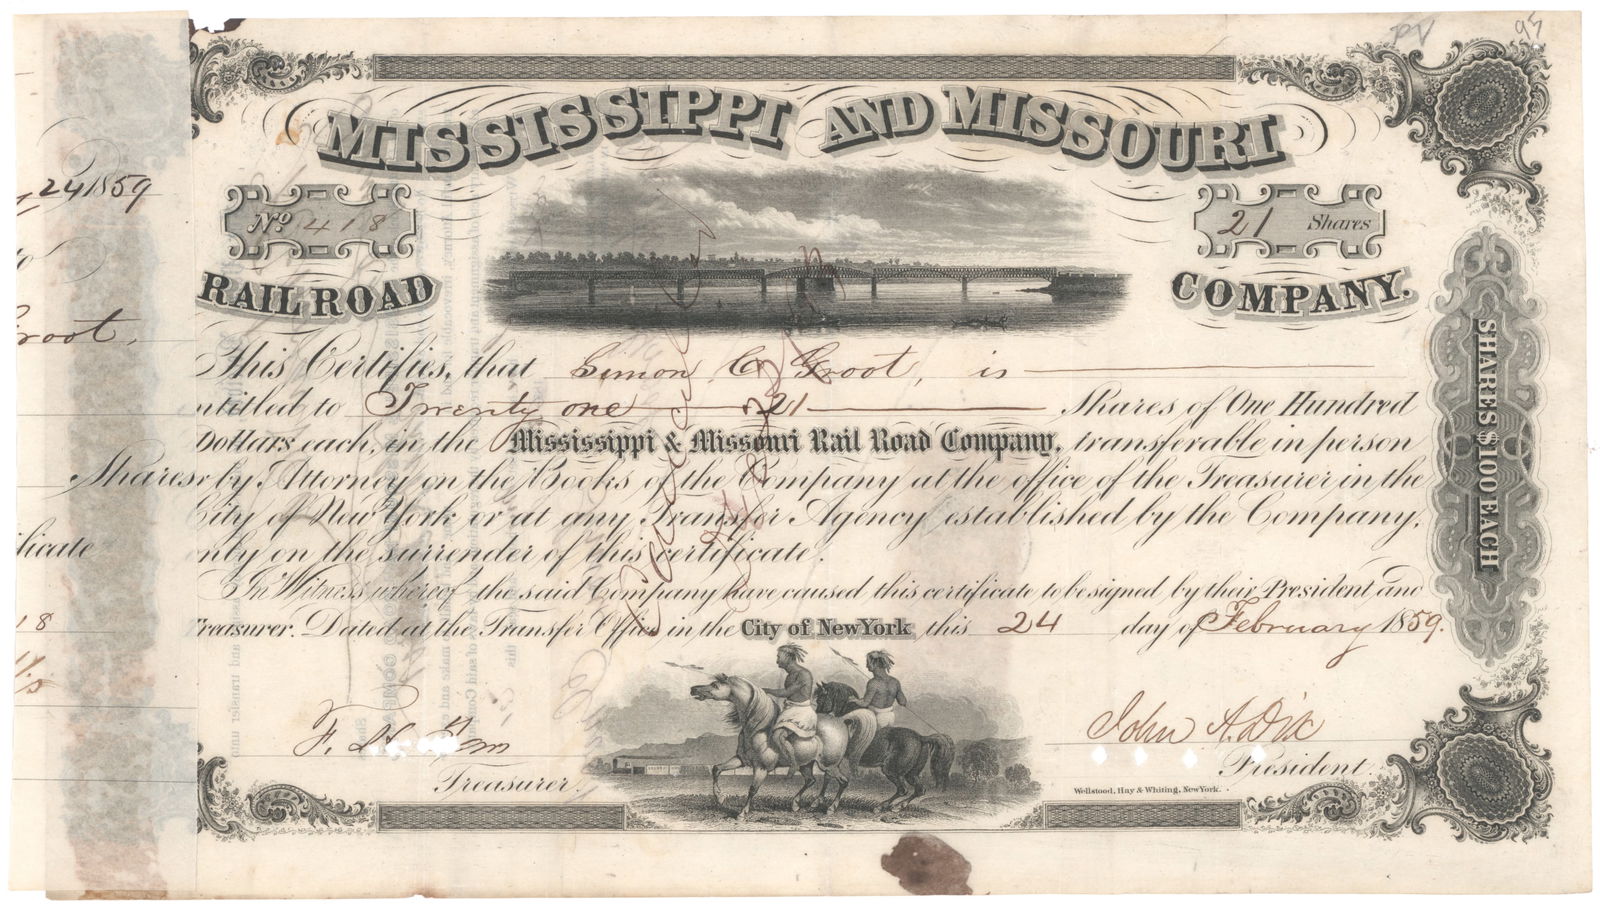 95
MISSISSIPPI AND MISSOURI
24 1859
No 418
21 Shares
RAIL ROAD
COMPANY.
root,
This Certifies, that Simon C Groot, is
ntitled to Twenty one 21 Shares of One Hundred
Dollars each, in the Mississippi & Missouri Rail Road Company, transferable in person
Shares
r by Attorney on the Books of the Company at the office of the Treasurer in the
City of New York or at any Transfer Agency established by the Company,
ficate
only on the surrender of this certificate.
In Witness whereof the said Company have caused this certificate to be signed by their President and
18
Treasurer. Dated at the Transfer Office in the City of New York this 24 day of February 1859.
SHARES $100 EACH
Cancelled
F.
John A. Dix
Treasurer.
President.
Wellstood, Hay & Whiting, New York.